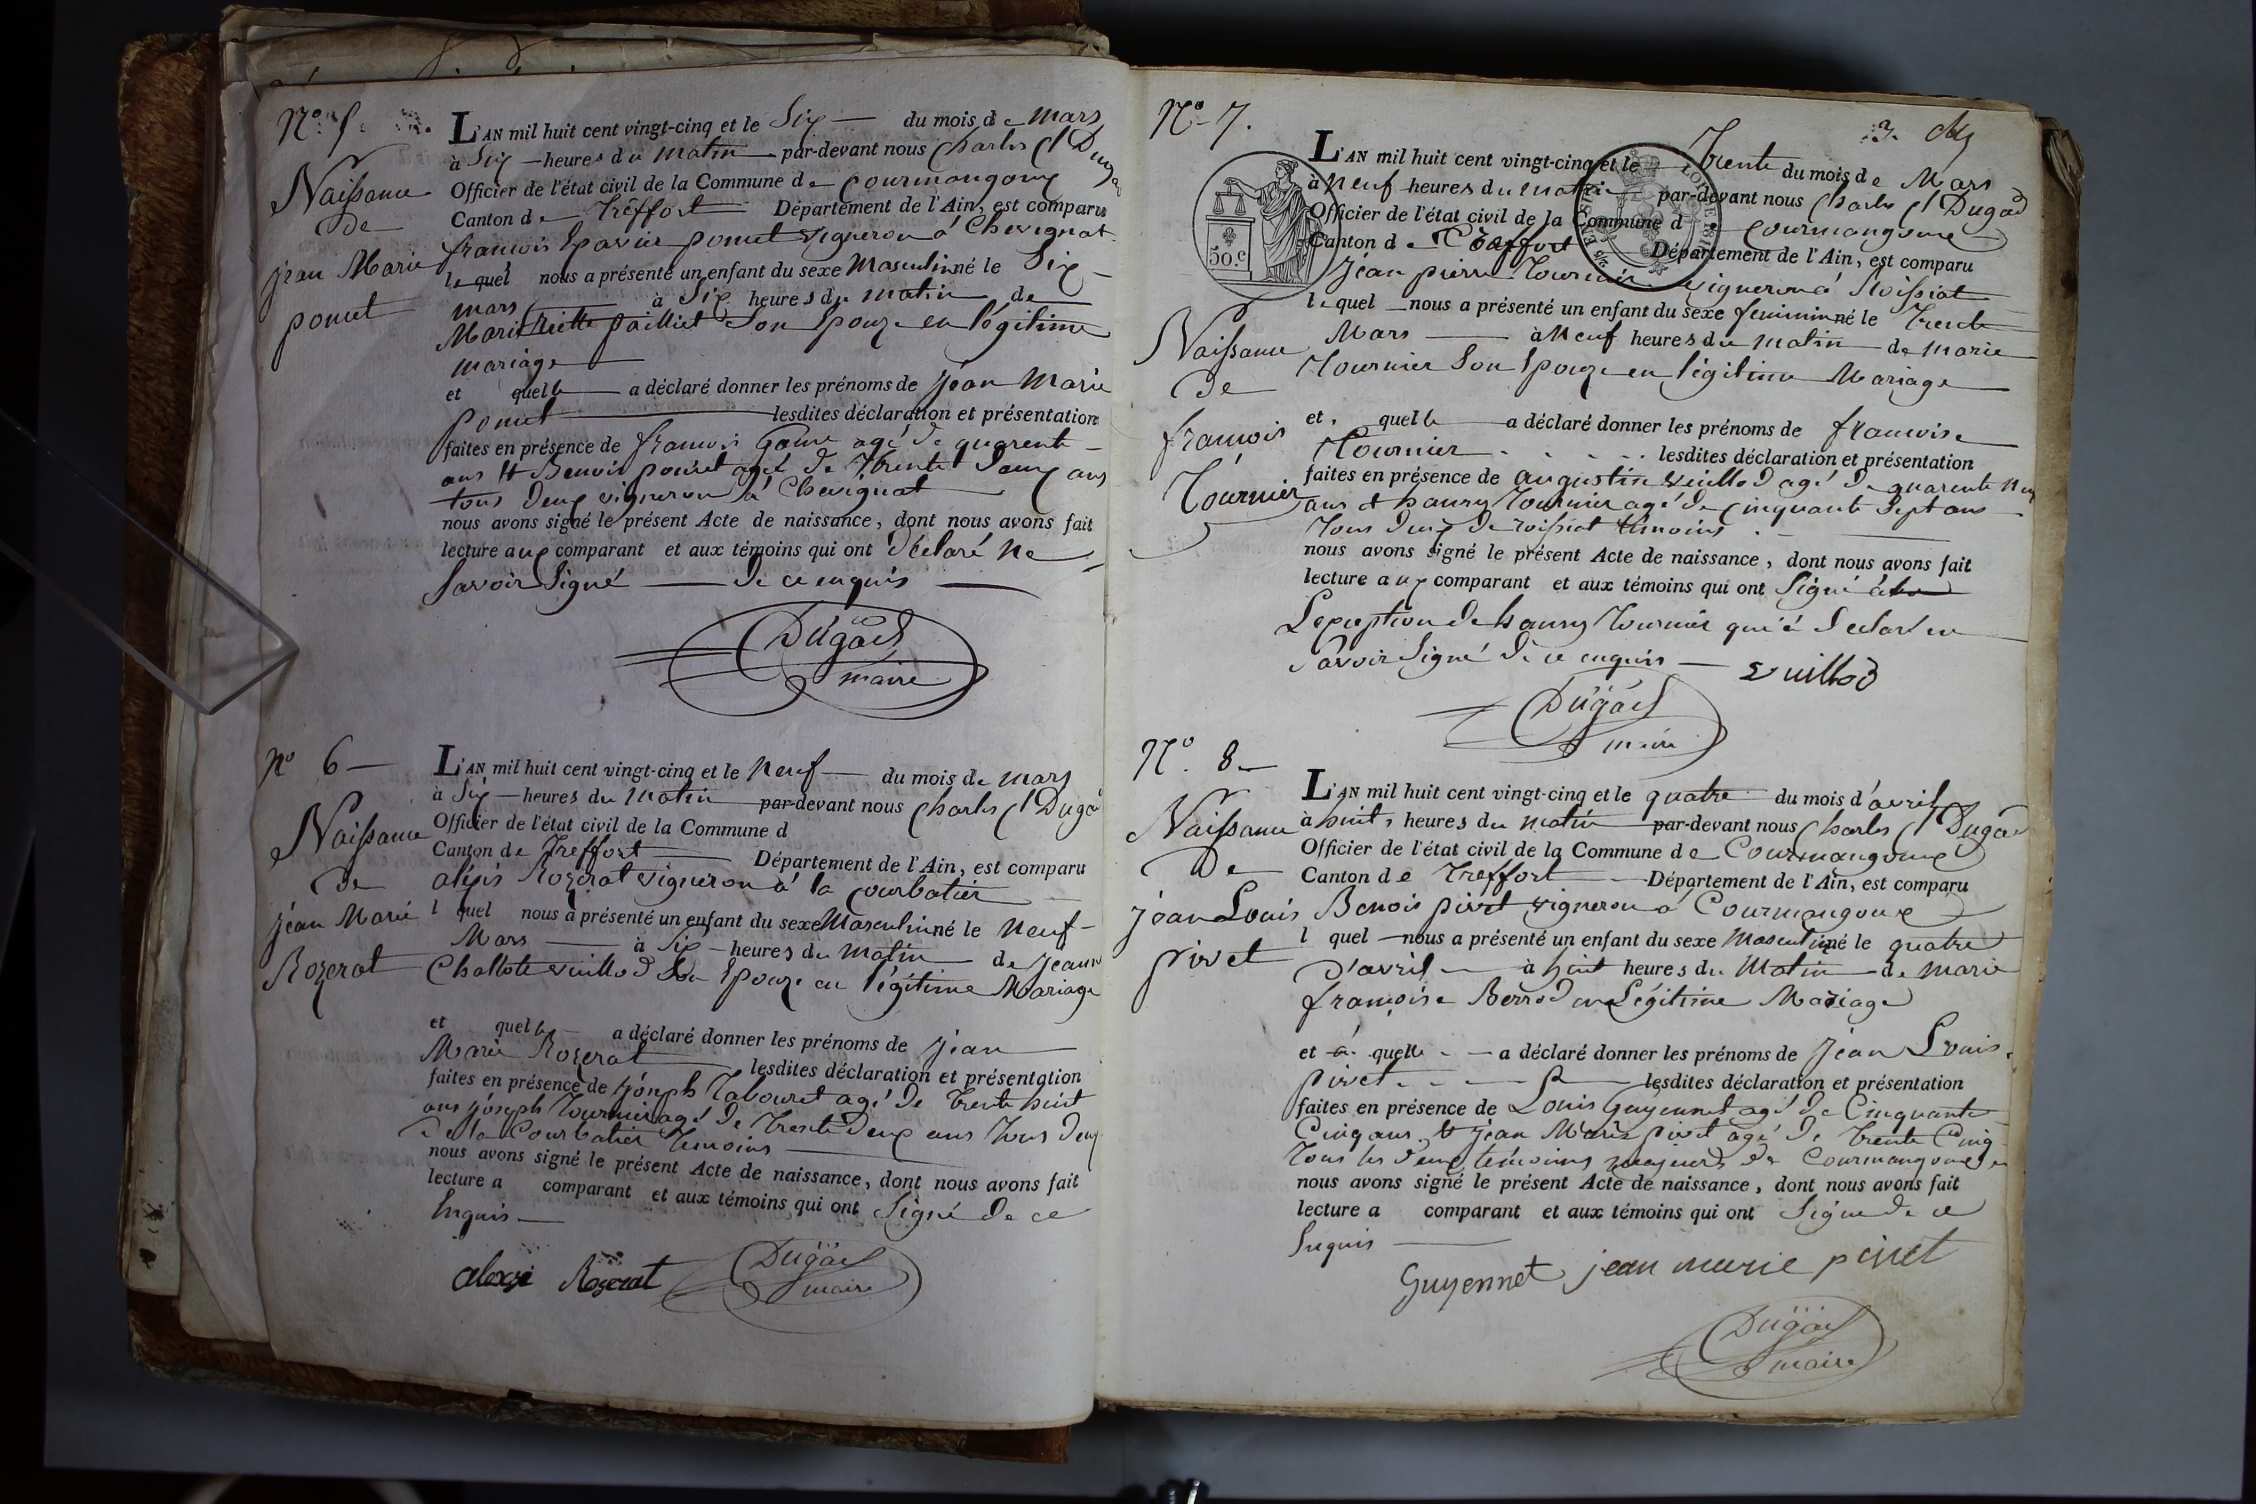 N° 5.
Naissance
de
jean Marie
ponet
L'AN mil huit cent vingt-cinq et le Six du mois de mars
à Six heures du matin par-devant nous Charles Cl Dugad
Officier de l'état civil de la Commune de Courmangoux
Canton de Treffort Département de l'Ain, est comparu
francois Xavier ponet vigneron á Chevignat
lequel nous a présenté un enfant du sexe Masculin né le Six
mars à Six heures du matin de
Marie paillet Son Epouze en légitime
mariage
et quelle a déclaré donner les prénoms de jean Marie
Ponet lesdites déclaration et présentation
faites en présence de francois agé de quarente
ans et Benoit agé de Trente Deux ans
tous Deux vigneron á Chevignat
nous avons signé le présent Acte de naissance, dont nous avons fait
lecture aux comparant et aux témoins qui ont Déclaré Ne
Savoir Signé De ce enquis
Dugad
maire
N° 6
Naissance
de
jean Marie
Rozerat
L'AN mil huit cent vingt-cinq et le Neuf du mois de mars
à Six heures du Matin par-devant nous Charles Cl Dugad
Officier de l'état civil de la Commune d
Canton de Treffort Département de l'Ain, est comparu
alexis Rozerat vigneron á la Courbatier
l quel nous a présenté un enfant du sexe Masculin né le Neuf
Mars à Six heures du Matin de jeanne
Challote vuillod Son Epouze en légitime Mariage
et quelle a déclaré donner les prénoms de jean
Marie Rozerat lesdites déclaration et présentation
faites en présence de joseph Tabouret agé de Trente huit
ans joseph Tournier agé de Trente Deux ans Tous Deux
de la Courbatier Temoins
nous avons signé le présent Acte de naissance, dont nous avons fait
lecture a comparant et aux témoins qui ont Signé De ce
Enquis
alexi Rozerat Dugad
maire
N° 7.
3.
50.c
LOI DE 181
Naissance
de
francois
Tournier
L'AN mil huit cent vingt-cinq et le Trente du mois de Mars
à Neuf heures du matin par-devant nous Charles Cl Dugad
Officier de l'état civil de la Commune d Courmangoux
Canton de Treffort Département de l'Ain, est comparu
jean pierre Tournier vigneron á Roissiat
lequel nous a présenté un enfant du sexe feminin né le Trente
Mars à Neuf heures du matin de marie
Tournier Son Epouze en légitime Mariage
et quelle a déclaré donner les prénoms de francoise
Tournier lesdites déclaration et présentation
faites en présence de augustin vuillod agé de quarente Neuf
ans et haury Tournier agé de Cinquante Sept ans
Tous Deux de roissiat temoins
nous avons signé le présent Acte de naissance, dont nous avons fait
lecture aux comparant et aux témoins qui ont Signé á
L'exeption de haury Tournier qui á Declaré ne
Savoir Signé De ce enquis vuillod
Dugad
maire
N° 8
Naissance
De
jean Louis
pivet
L'AN mil huit cent vingt-cinq et le quatre du mois d'avril
à huit heures du matin par-devant nous Charles Cl Dugad
Officier de l'état civil de la Commune de Courmangoux
Canton de Treffort Département de l'Ain, est comparu
Benois pivet vigneron á Courmangoux
l quel nous a présenté un enfant du sexe Masculin né le quatre
D'avril à huit heures du Matin de Marie
françoise Berrod en Légitime Mariage
et á quelle a déclaré donner les prénoms de jean Louis
pivet lesdites déclaration et présentation
faites en présence de Louis Guyennet agé de Cinquante
Cinq ans et jean Marie pivet agé de Trente Cinq
Tous les deux témoins majeurs de Courmangoux
nous avons signé le présent Acte de naissance, dont nous avons fait
lecture a comparant et aux témoins qui ont Signé De ce
Enquis
Guyennet jean marie pivet
Dugad
maire